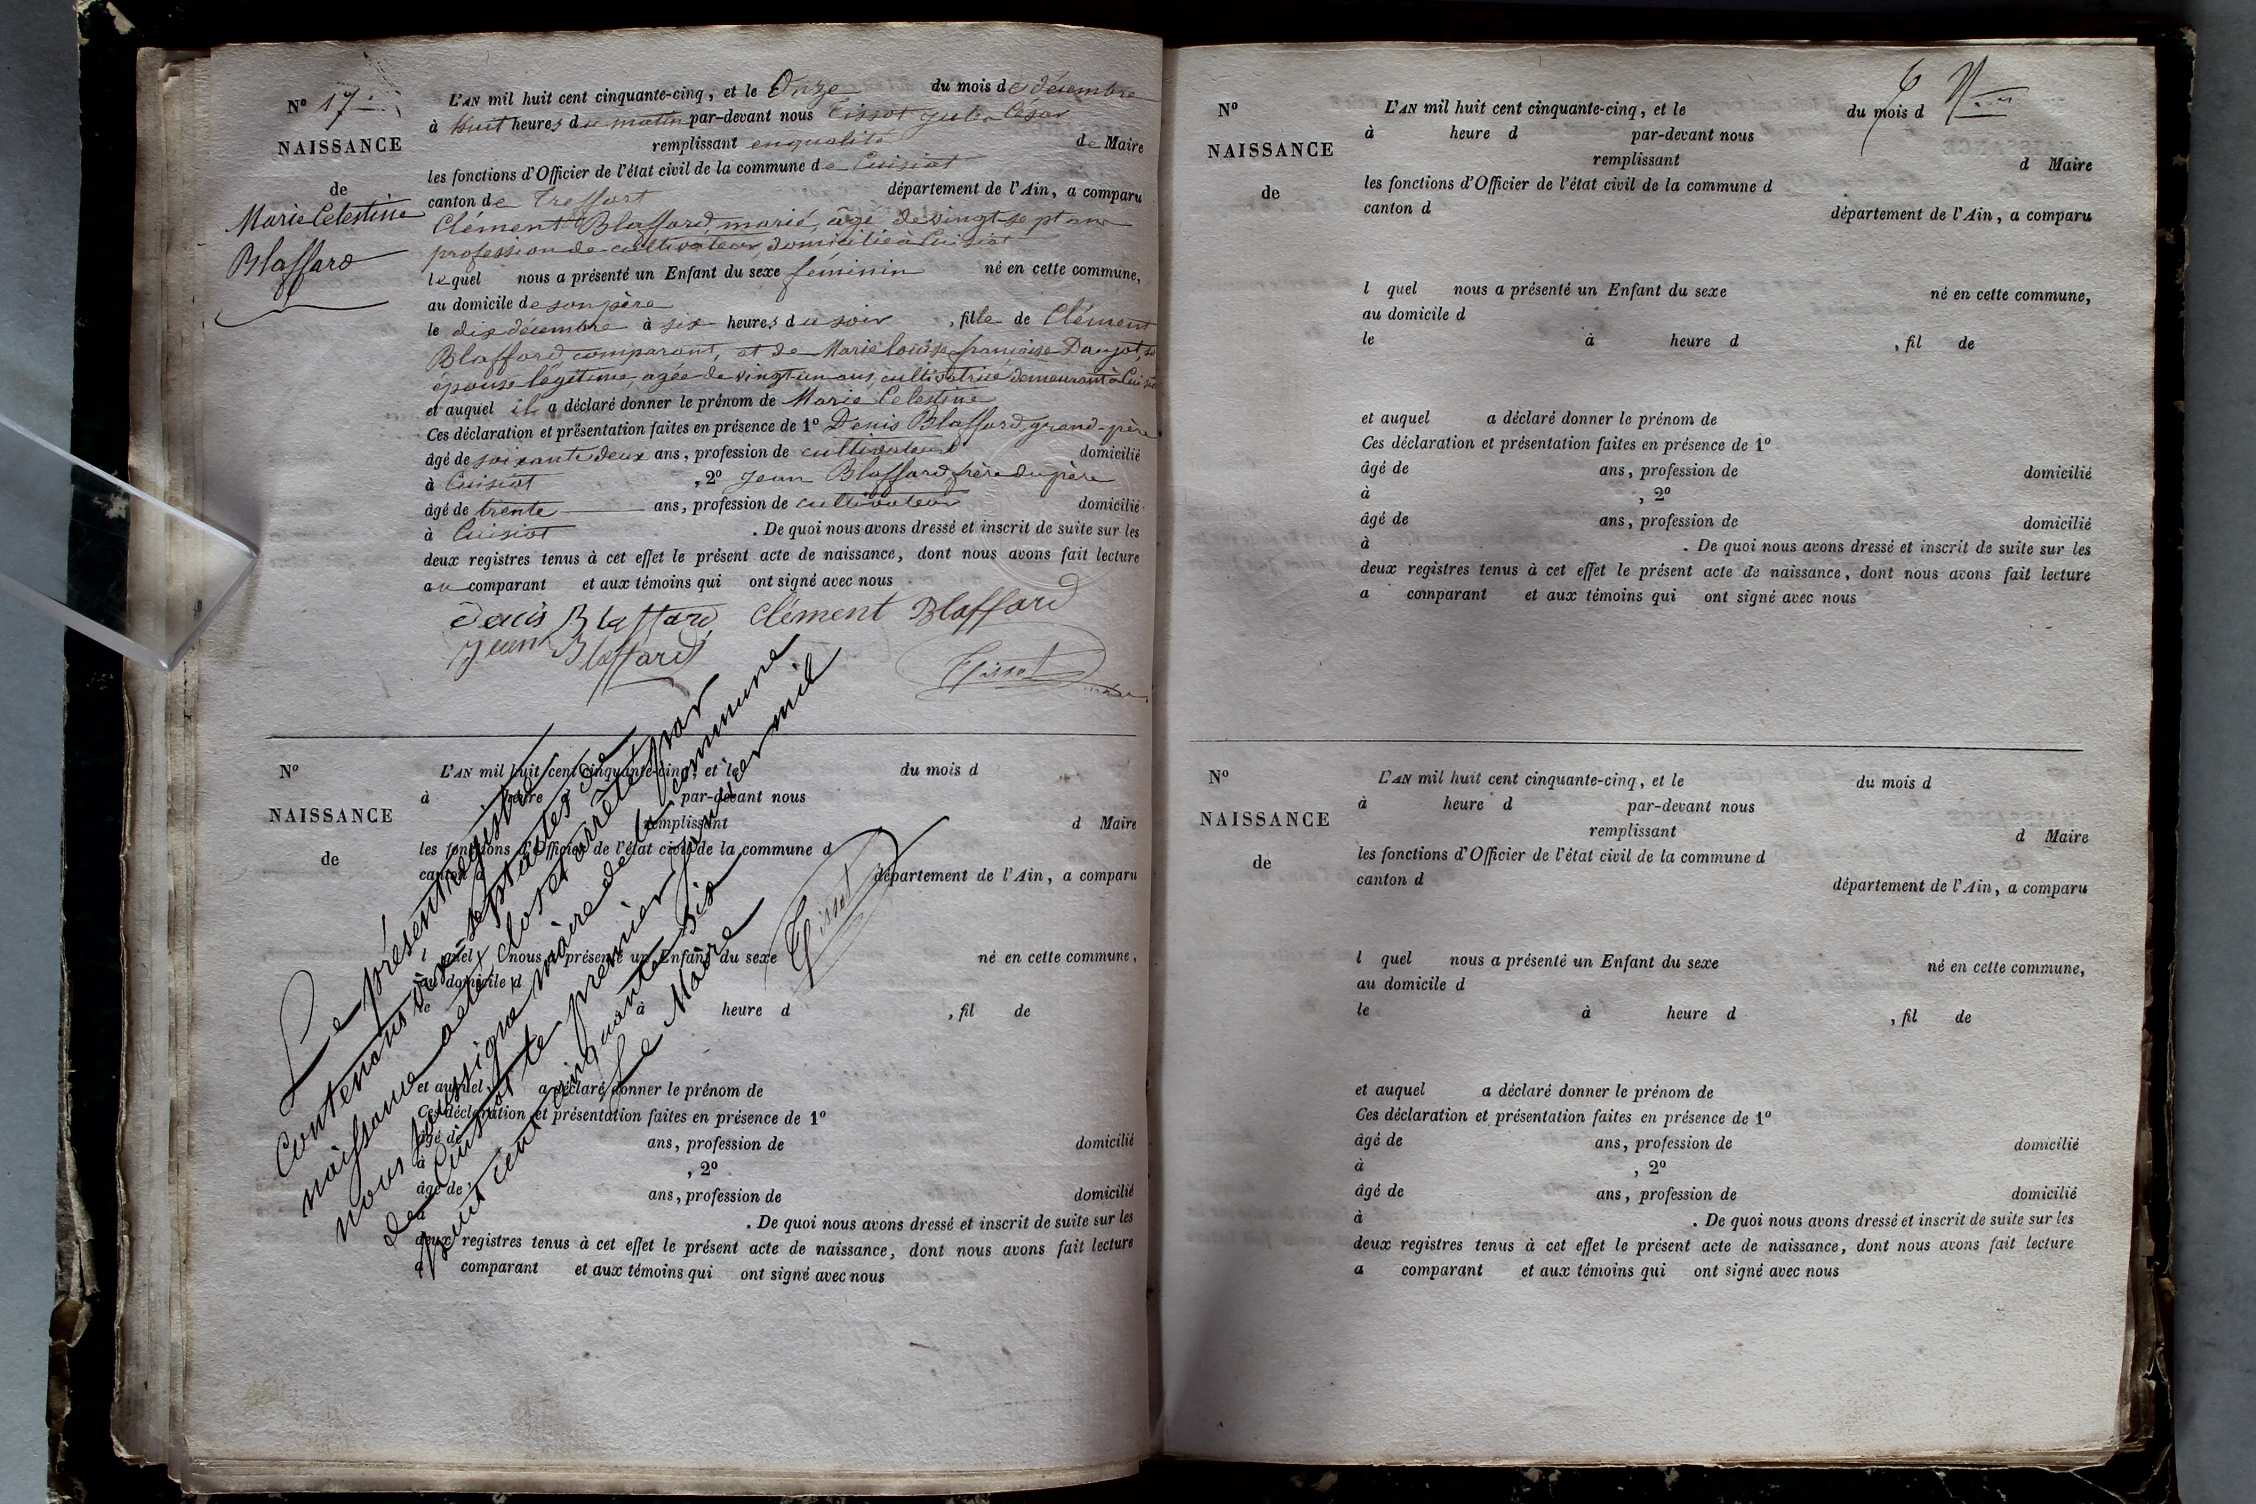 N° 17
NAISSANCE
de
Marie Celestine
Blaffard
L'AN mil huit cent cinquante-cinq, et le Onze du mois de décembre
à huit heures du matin par-devant nous Tissot Jules César
remplissant en qualité de Maire
les fonctions d'Officier de l'état civil de la commune de Cuisiat
canton de Treffort département de l'Ain, a comparu
Clément Blaffard, marié, âgé de vingt sept ans
profession de cultivateur, domicilié à Cuisiat
lequel nous a présenté un Enfant du sexe féminin né en cette commune,
au domicile de son père
le dix décembre à six heures du soir, fille de Clément
Blaffard, comparant, et de Marie louise françoise Daujat, sa
épouse légitime, agée de vingt un ans, cultivatrice demeurant à Cuisiat
et auquel il a déclaré donner le prénom de Marie Celestine
Ces déclaration et présentation faites en présence de 1° Denis Blaffard, grand-père
âgé de soixante deux ans, profession de cultivateur domicilié
à Cuisiat, 2° Jean Blaffard, frère du père
âgé de trente ans, profession de cultivateur domicilié
à Cuisiat. De quoi nous avons dressé et inscrit de suite sur les
deux registres tenus à cet effet le présent acte de naissance, dont nous avons fait lecture
au comparant et aux témoins qui ont signé avec nous
Denis Blaffard Clément Blaffard
Jean Blaffard Tissot
N°
NAISSANCE
de
L'AN mil huit cent cinquante-cinq, et le du mois d
à heure d par-devant nous
remplissant d Maire
les fonctions d'Officier de l'état civil de la commune d
canton d département de l'Ain, a comparu
l quel nous a présenté un Enfant du sexe né en cette commune,
au domicile d
le à heure d , fil de
et auquel a déclaré donner le prénom de
Ces déclaration et présentation faites en présence de 1°
âgé de ans, profession de domicilié
à , 2°
âgé de ans, profession de domicilié
à . De quoi nous avons dressé et inscrit de suite sur les
deux registres tenus à cet effet le présent acte de naissance, dont nous avons fait lecture
a comparant et aux témoins qui ont signé avec nous
Le présent Registre
Contenant dix-sept actes de
naissance a été clos et arrêté par
nous soussigné maire de la commune
de Cuisiat le premier janvier mil
huit cent cinquante six
Le Maire
Tissot
N°
NAISSANCE
de
L'AN mil huit cent cinquante-cinq, et le du mois d
à heure d par-devant nous
remplissant d Maire
les fonctions d'Officier de l'état civil de la commune d
canton d
département de l'Ain, a comparu
l quel nous a présenté un Enfant du sexe né en cette commune,
au domicile d
le à heure d , fil de
et auquel a déclaré donner le prénom de
Ces déclaration et présentation faites en présence de 1°
âgé de ans, profession de domicilié
à , 2°
âgé de ans, profession de domicilié
à . De quoi nous avons dressé et inscrit de suite sur les
deux registres tenus à cet effet le présent acte de naissance, dont nous avons fait lecture
a comparant et aux témoins qui ont signé avec nous
N°
NAISSANCE
de
L'AN mil huit cent cinquante-cinq, et le du mois d
à heure d par-devant nous
remplissant d Maire
les fonctions d'Officier de l'état civil de la commune d
canton d
département de l'Ain, a comparu
l quel nous a présenté un Enfant du sexe né en cette commune,
au domicile d
le à heure d , fil de
et auquel a déclaré donner le prénom de
Ces déclaration et présentation faites en présence de 1°
âgé de ans, profession de domicilié
à , 2°
âgé de ans, profession de domicilié
à . De quoi nous avons dressé et inscrit de suite sur les
deux registres tenus à cet effet le présent acte de naissance, dont nous avons fait lecture
a comparant et aux témoins qui ont signé avec nous